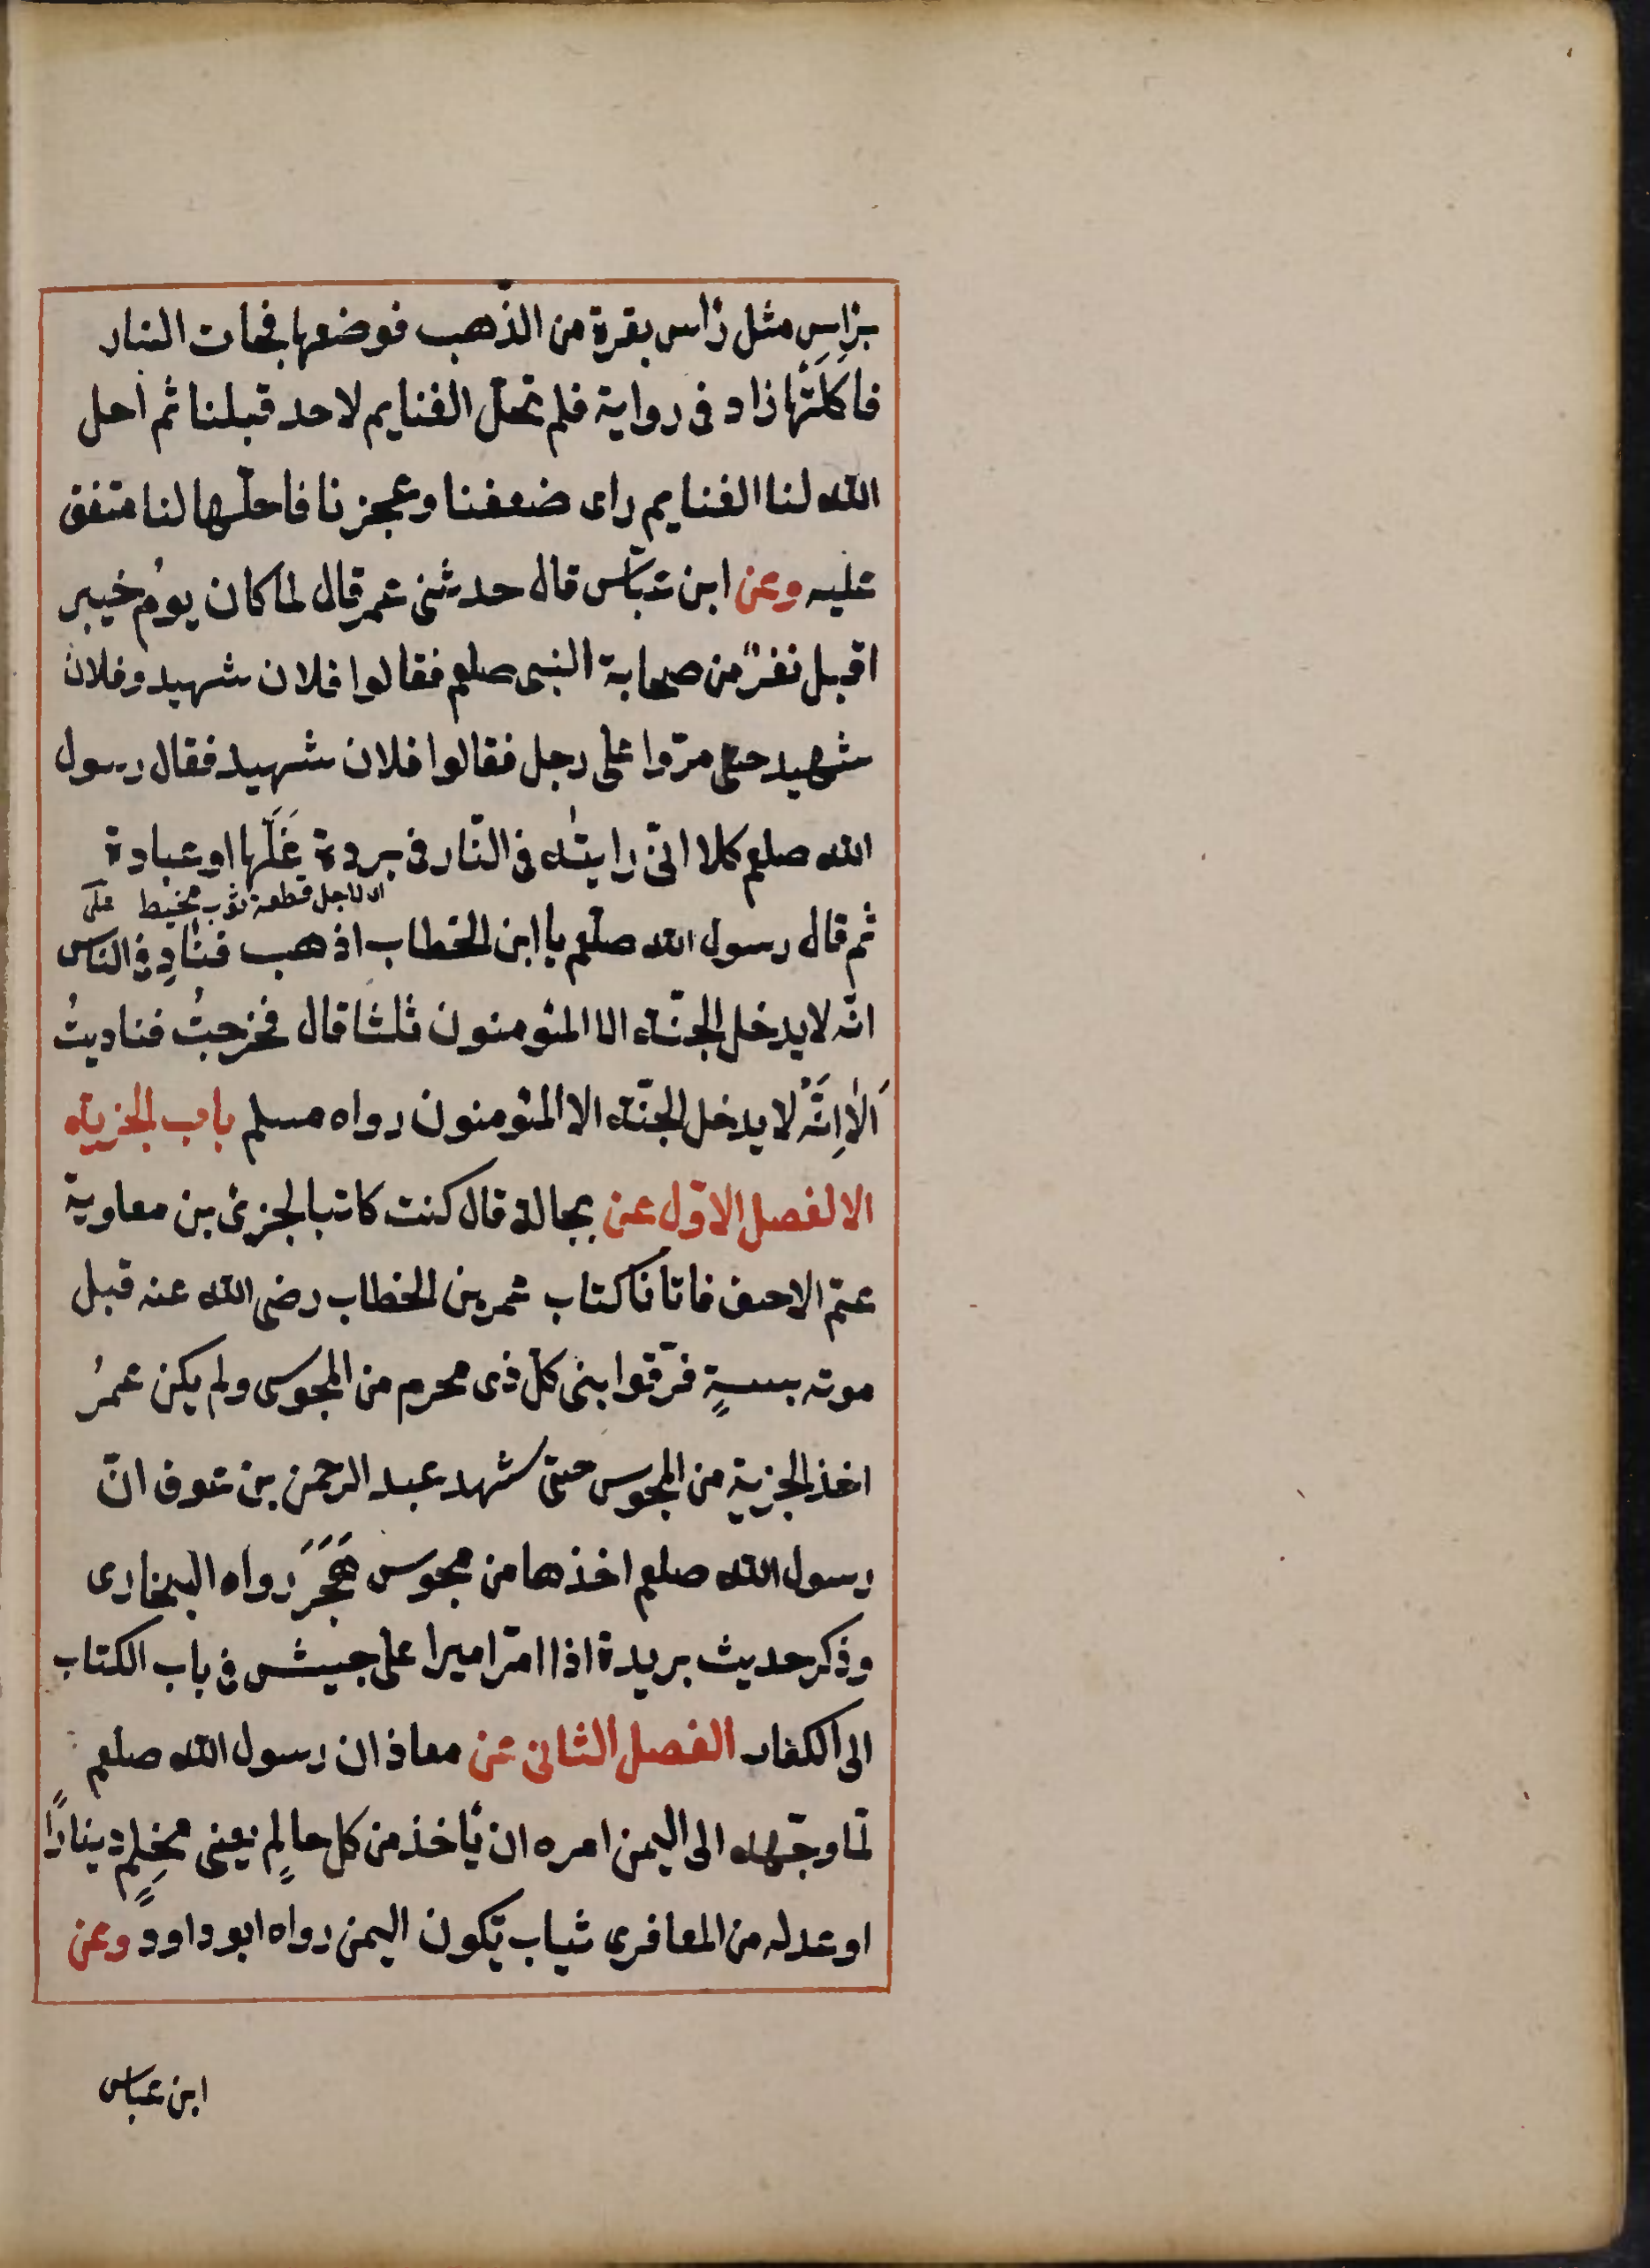 براس مثل راس بقرة من الذّهب فوضعها فجات النار
فاَكَلَتْها زاد فى رواية فلم تحلّ الغنايم لاحد قبلنا ثم احل
الله لنا الغنايم راى ضعفنا وعجزنا فاحلّها لنا متفق
عليه وعن ابن عبّاس قال حدثنى عمر قال لما كان يومُ خيبر
اقبل نفرٌ من صحابة النبى صلعم فقالوا فلان شهيد وفلان
شهيد حتى مرّوا على رجل فقالوا فلان شهيد فقال رسول
الله صلعم كلا انّى رايتُه فى النّار فى بردة غَلَّها او عباءة
اى لاجل قطعة ثوب مخيط
ثم قال رسول الله صلعم يا ابن الخطاب اذهب فنادِ فى الناس
انّه لا يدخل الجنّة الا المئومنون ثلثا قال فخرجتُ فناديتُ
اَلاَ اِنَّهُ لا يدخل الجنّة الا المئومنون رواه مسلم باب الجزية
الالفصل الاوّل عن بجالة قال كنت كاتبا لجزئ بن معاوية
عمّ الاحنف فاتانا كتاب عمر بن الخطاب رضى الله عنه قبل
موته بسنةٍ فرّقوا بنى كلّ ذى محرم من المجوس ولم يكن عمرُ
اخذ الجزية من المجوس حتى شهد عبد الرحمن بن عوف انّ
رسول الله صلعم اخذها من مجوس هَجَرَ رواه البخارى
وذكر حديث بريدة اذا امّر اميرا على جيش فى باب الكتاب
الى الكفار الفصل الثانى عن معاذ ان رسول الله صلعم
لمّا وجّهه الى اليمن امره ان يأخذ من كل حالمٍ يعنى محتلِمٍ دينارًا
او عدله من المعافرى ثياب تكون اليمن رواه ابو داود وعن
ابن عباس